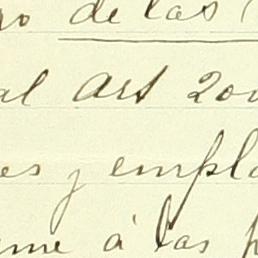 ro de las (
al art 200
es y empla
me á las p